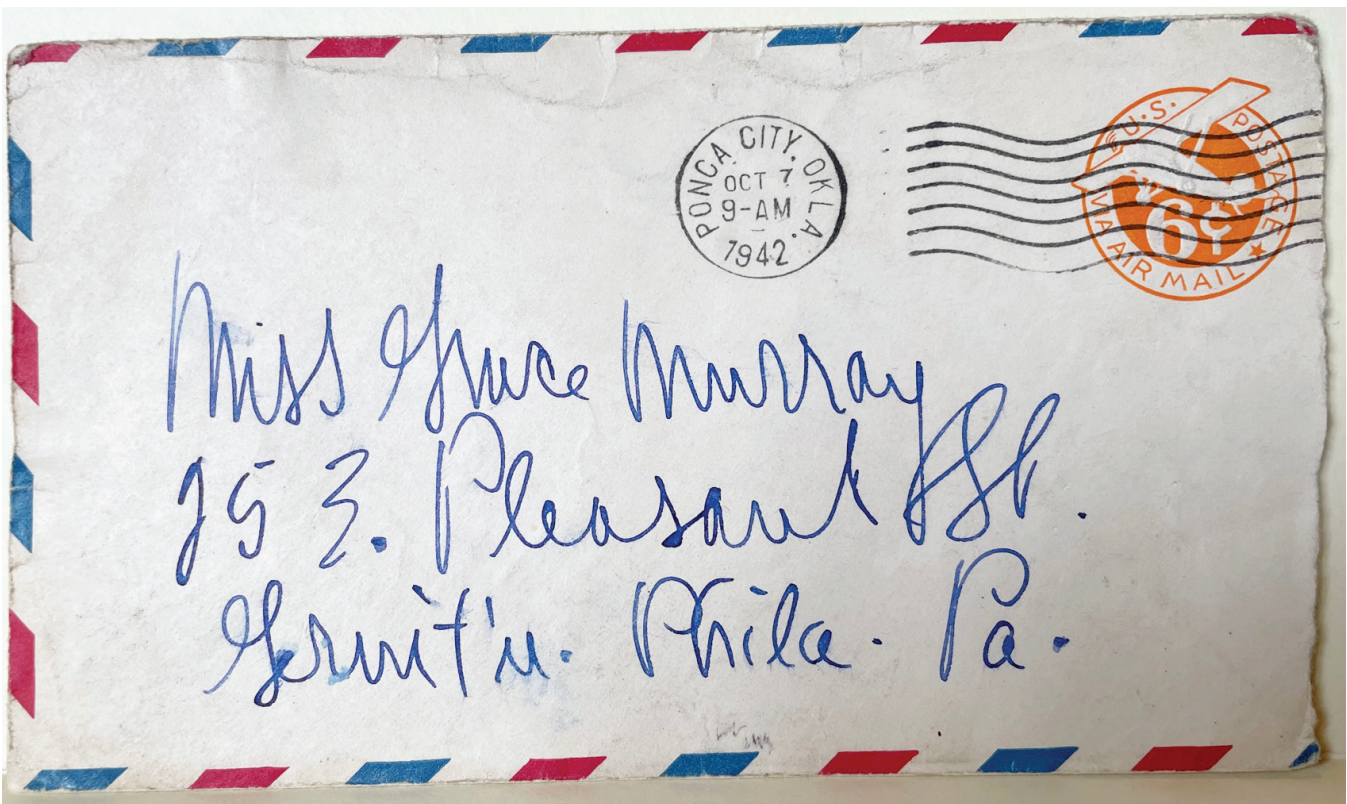 PONCA CITY, OKLA.
OCT 7
9-AM
1942
U.S. POSTAGE
6¢
VIA AIR MAIL
Miss Grace Murray
25 E. Pleasant St.
Germt'n. Phila. Pa.